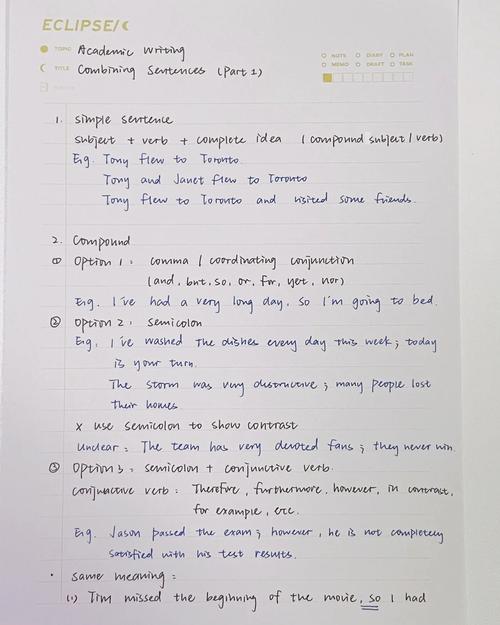 ECLIPSE/
TOPIC Academic writing
TITLE Combining Sentences (Part 1)
NOTE DIARY PLAN
MEMO DRAFT TASK
1. simple sentence
subject + verb + complete idea (compound subject / verb)
Eg. Tony flew to Toronto.
Tony and Janet flew to Toronto
Tony flew to Toronto and visited some friends.
2. Compound
① Option 1: comma / coordinating conjunction
(and, but, so, or, for, yet, nor)
Eg. I've had a very long day, so I'm going to bed.
② Option 2: semicolon
Eg. I've washed the dishes every day this week; today
is your turn.
The storm was very destructive; many people lost
their homes
x use semicolon to show contrast
Unclear: The team has very devoted fans; they never win.
③ Option 3: semicolon + conjunctive verb.
conjunctive verb: Therefore, furthermore, however, in contrast,
for example, etc.
Eg. Jason passed the exam; however, he is not completely
satisfied with his test results.
· same meaning:
(1) Tim missed the beginning of the movie, so I had